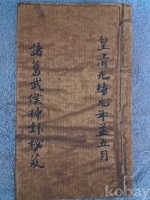 皇清光緒元年孟五月
諸葛武侯神卦秘笈
kobay